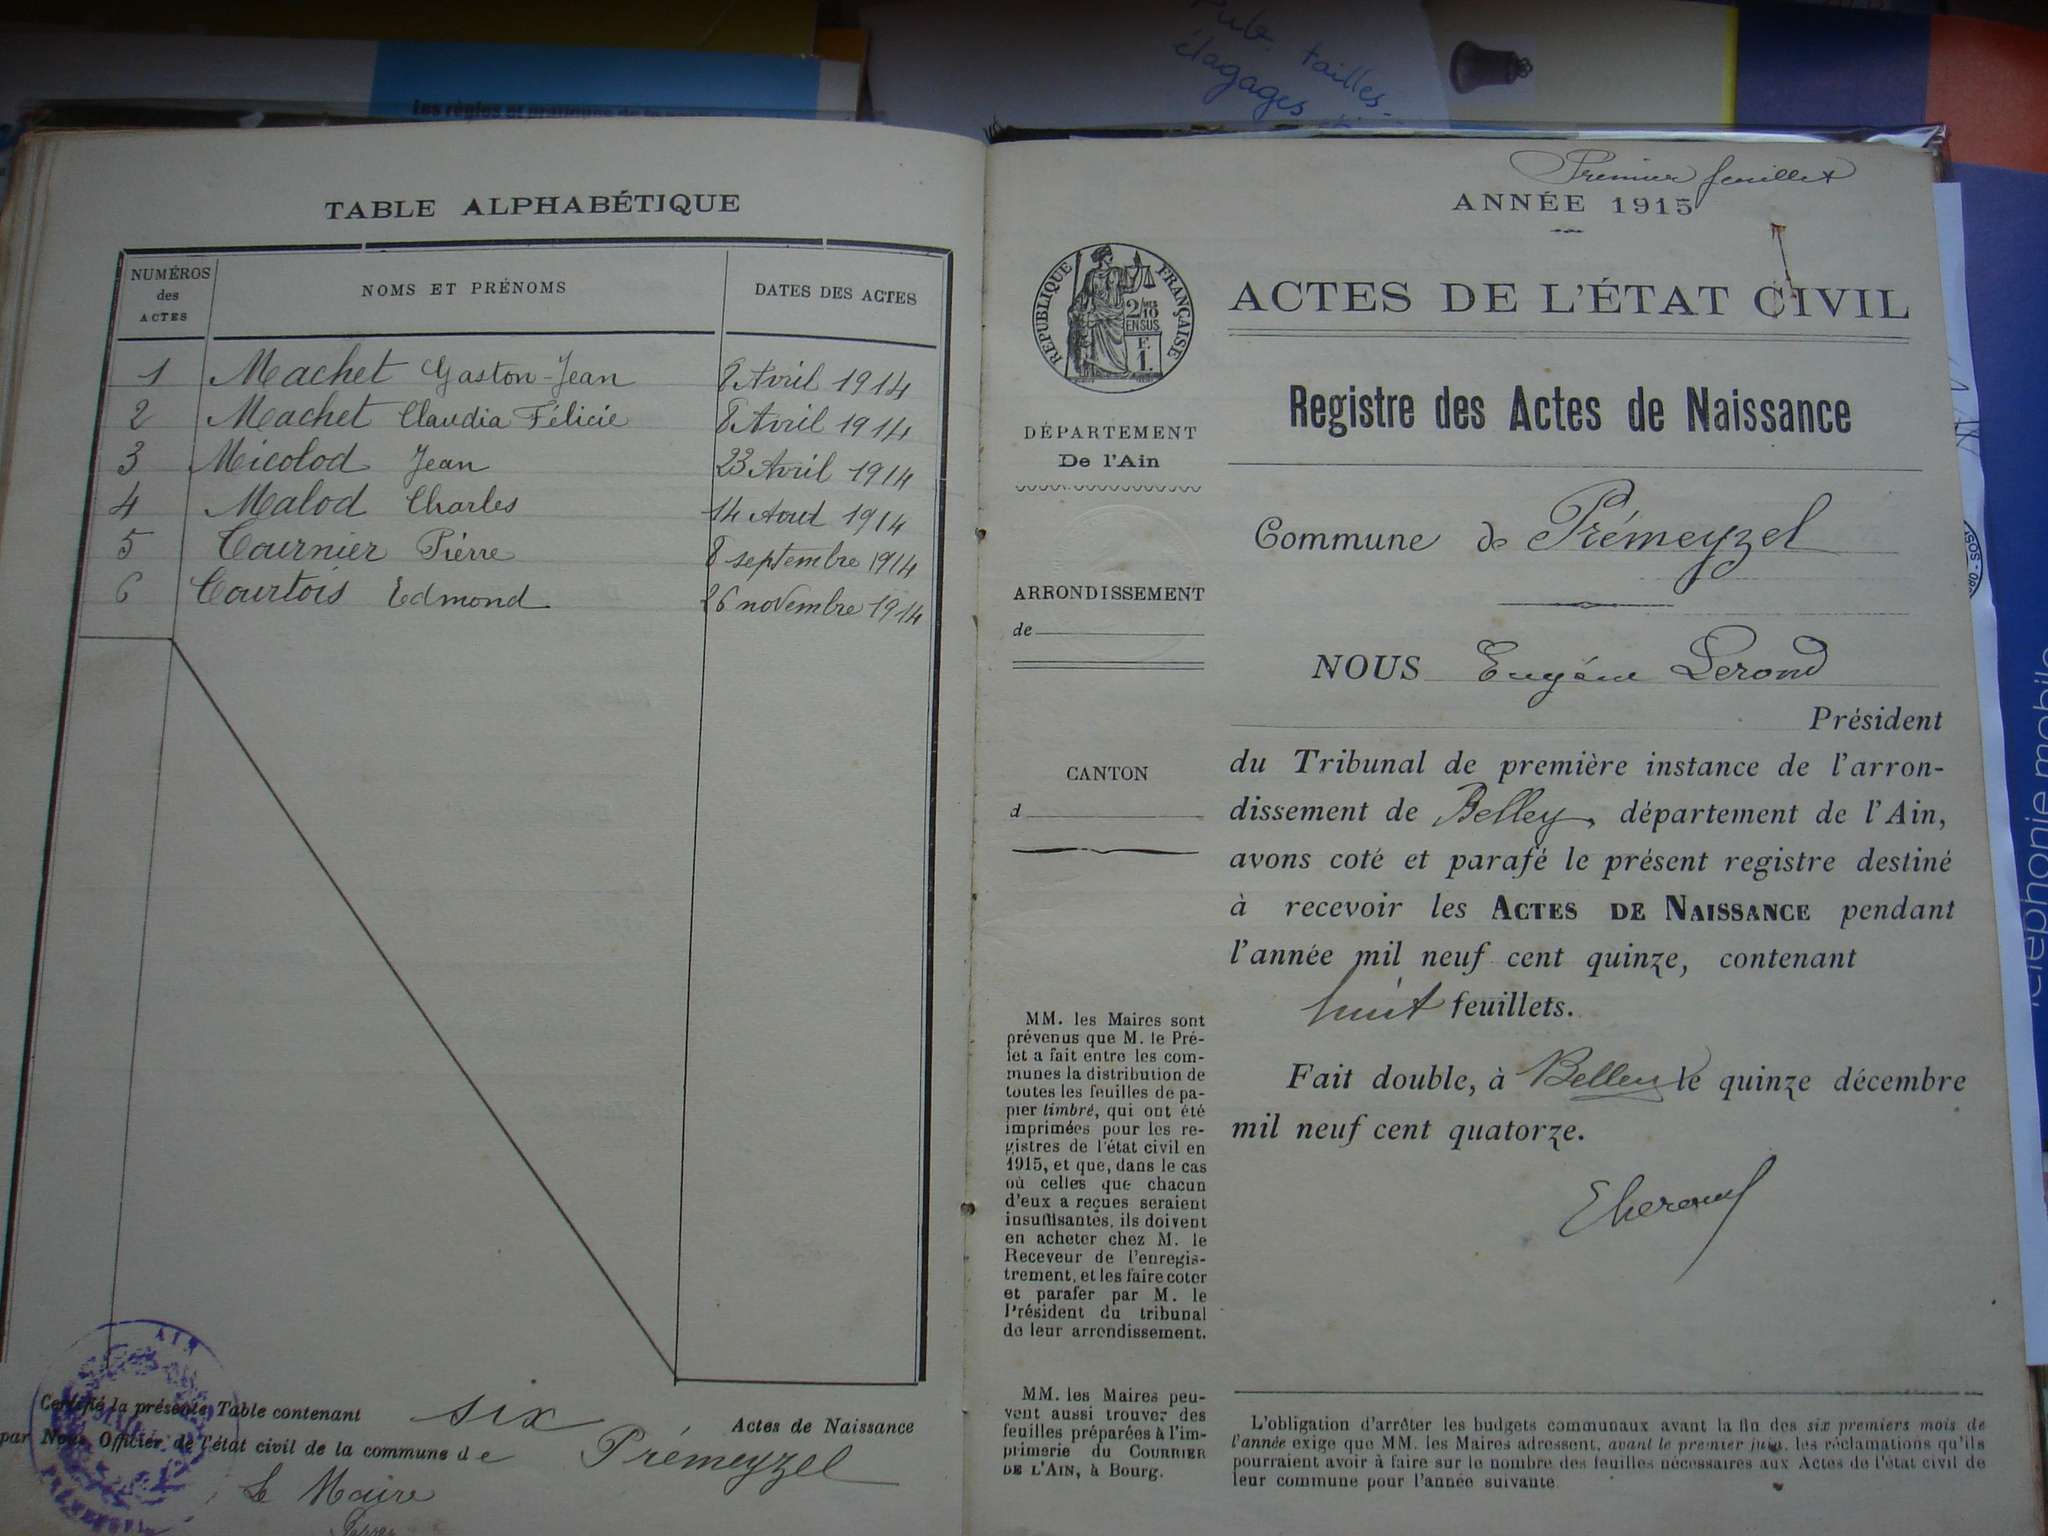 Pub. tailles
élagages
Les règles et pratiques de
TABLE ALPHABÉTIQUE
NUMÉROS des ACTES
NOMS ET PRÉNOMS
DATES DES ACTES
1 Machet Gaston-Jean 8 Avril 1914
2 Machet Claudia Félicie 8 Avril 1914
3 Micolod Jean 23 Avril 1914
4 Malod Charles 14 Aout 1914
5 Tournier Pierre 8 septembre 1914
6 Courtois Edmond 26 novembre 1914
Certifié la présente Table contenant six Actes de Naissance
par Nous Officier de l'état civil de la commune de Prémeyzel
Le Maire
AIN
Premier feuillet
ANNÉE 1915
RÉPUBLIQUE FRANÇAISE
2/10
EN SUS
F.
1.
ACTES DE L'ÉTAT CIVIL
Registre des Actes de Naissance
DÉPARTEMENT
De l'Ain
Commune de Prémeyzel
ARRONDISSEMENT
de
NOUS Eugène Perond
Président
CANTON
d
du Tribunal de première instance de l'arron-
dissement de Belley, département de l'Ain,
avons coté et parafé le présent registre destiné
à recevoir les ACTES DE NAISSANCE pendant
l'année mil neuf cent quinze, contenant
huit feuillets.
Fait double, à Belley le quinze décembre
mil neuf cent quatorze.
MM. les Maires sont
prévenus que M. le Pré-
fet a fait entre les com-
munes la distribution de
toutes les feuilles de pa-
pier timbré, qui ont été
imprimées pour les re-
gistres de l'état civil en
1915, et que, dans le cas
où celles que chacun
d'eux a reçues seraient
insuffisantes, ils doivent
en acheter chez M. le
Receveur de l'enregis-
trement, et les faire coter
et parafer par M. le
Président du tribunal
de leur arrondissement.
MM. les Maires peu-
vent aussi trouver des
feuilles préparées à l'im-
primerie du COURRIER
DE L'AIN, à Bourg.
L'obligation d'arrêter les budgets communaux avant la fin des six premiers mois de
l'année exige que MM. les Maires adressent, avant le premier juin, les réclamations qu'ils
pourraient avoir à faire sur le nombre des feuilles nécessaires aux Actes de l'état civil de
leur commune pour l'année suivante
téléphonie mobile